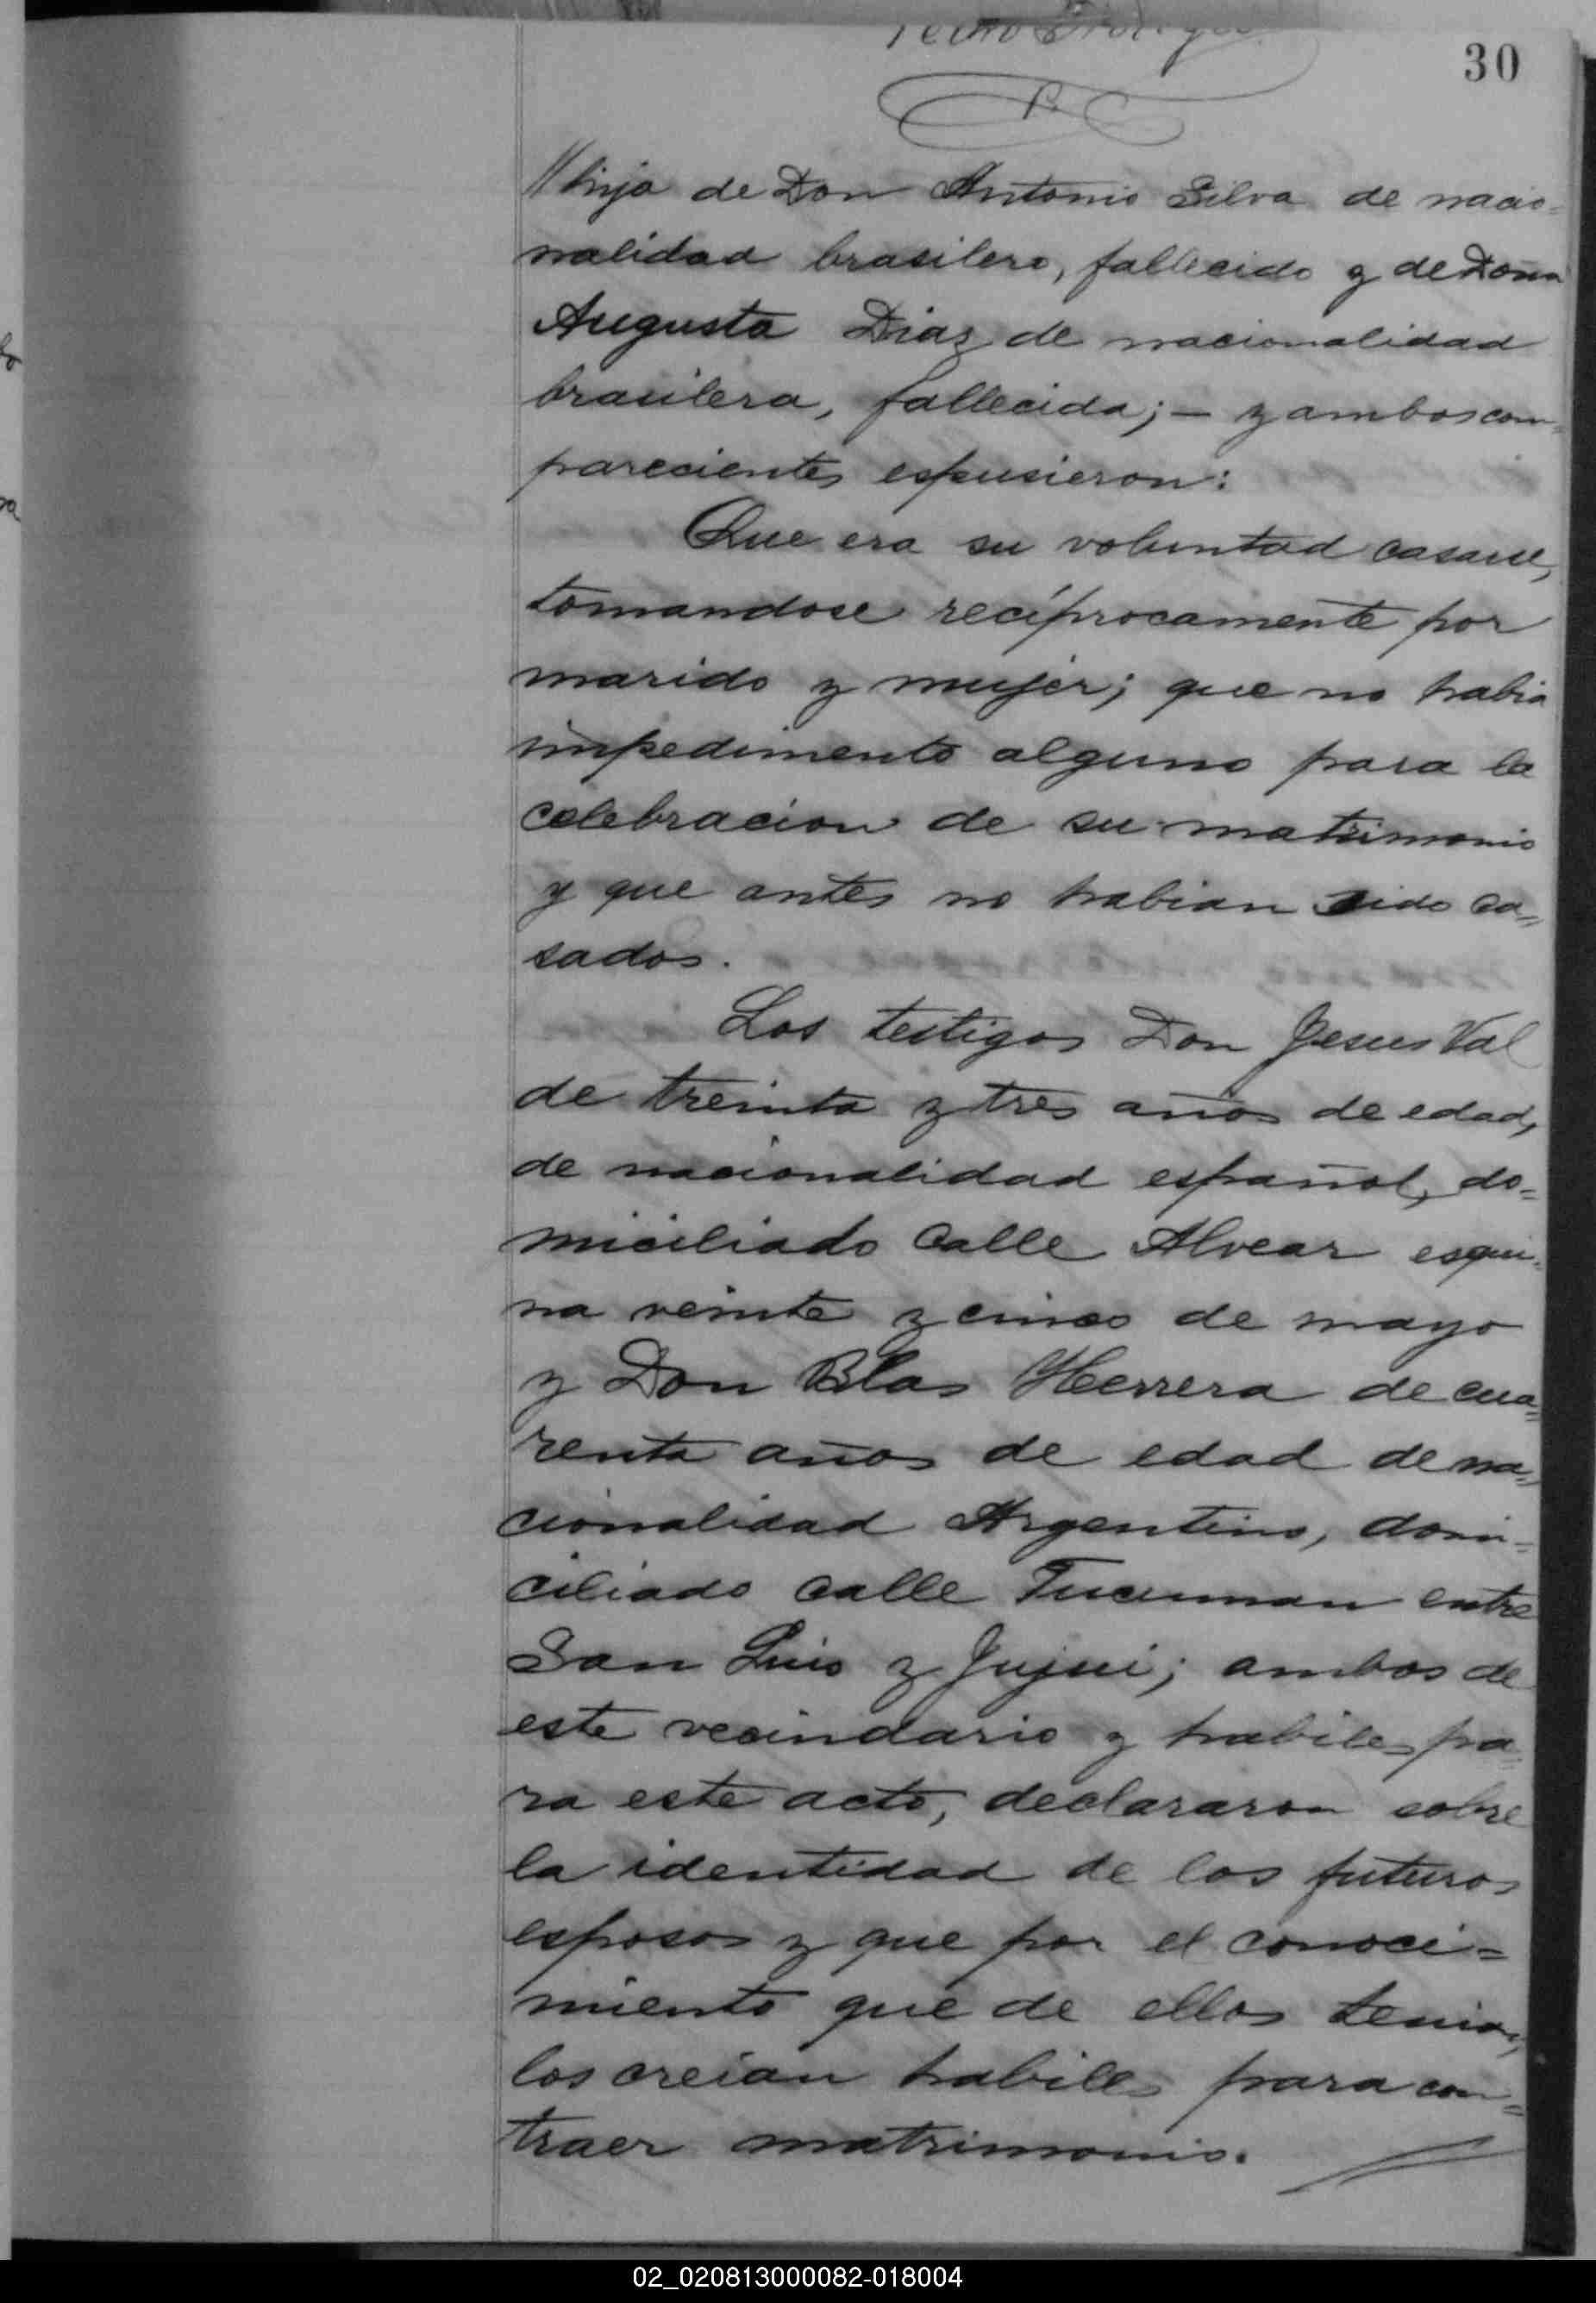 30
// hija de Don Antonio Silva de nacio=
nalidad brasilero, fallecido y de Doña
Augusta Diaz de nacionalidad
brasilera, fallecida; — y ambos com=
parecientes espusieron:
Que era su voluntad casarse,
tomandose recíprocamente por
marido y mujer; que no habia
impedimento alguno para la
celebracion de su matrimonio
y que antes no habian sido ca=
sados.
Los testigos Don Jesus Val
de treinta y tres años de edad,
de nacionalidad español, do=
miciliado calle Alvear esqui=
na veinte y cinco de mayo
y Don Blas Herrera de cua=
renta años de edad de na=
cionalidad Argentino, domi=
ciliado calle Tucuman entre
San Luis y Jujui; ambos de
este vecindario y habiles pa=
ra este acto, declararon sobre
la identidad de los futuros
esposos y que por el conoci=
miento que de ellos tenian,
los creian habiles para con=
traer matrimonio.
02_020813000082-018004